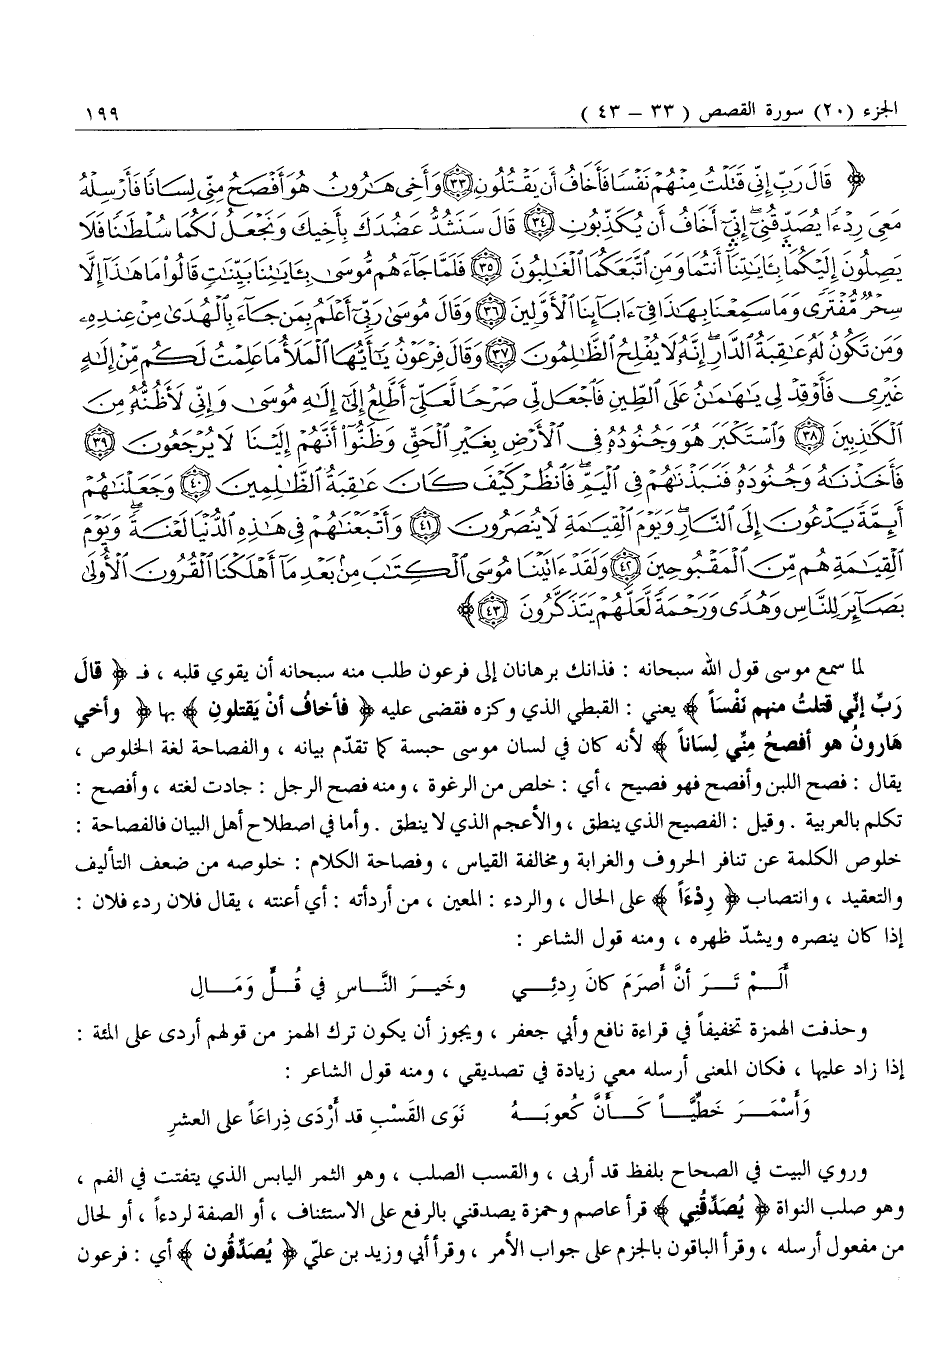 الجزء (٢٠) سورة القصص ( ٣٣ – ٤٣ ) ١٩٩
﴿ قَالَ رَبِّ إِنِّي قَتَلْتُ مِنْهُمْ نَفْسًا فَأَخَافُ أَن يَقْتُلُونِ ٣٣ وَأَخِي هَٰرُونُ هُوَ أَفْصَحُ مِنِّي لِسَانًا فَأَرْسِلْهُ
مَعِيَ رِدْءًا يُصَدِّقُنِيٓ إِنِّيٓ أَخَافُ أَن يُكَذِّبُونِ ٣٤ قَالَ سَنَشُدُّ عَضُدَكَ بِأَخِيكَ وَنَجْعَلُ لَكُمَا سُلْطَٰنًا فَلَا
يَصِلُونَ إِلَيْكُمَا بِـَٔايَٰتِنَآ أَنتُمَا وَمَنِ ٱتَّبَعَكُمَا ٱلْغَٰلِبُونَ ٣٥ فَلَمَّا جَآءَهُم مُّوسَىٰ بِـَٔايَٰتِنَا بَيِّنَٰتٍ قَالُوا۟ مَا هَٰذَآ إِلَّا
سِحْرٌ مُّفْتَرًى وَمَا سَمِعْنَا بِهَٰذَا فِيٓ ءَابَآئِنَا ٱلْأَوَّلِينَ ٣٦ وَقَالَ مُوسَىٰ رَبِّيٓ أَعْلَمُ بِمَن جَآءَ بِٱلْهُدَىٰ مِنْ عِندِهِۦ
وَمَن تَكُونُ لَهُۥ عَٰقِبَةُ ٱلدَّارِ إِنَّهُۥ لَا يُفْلِحُ ٱلظَّٰلِمُونَ ٣٧ وَقَالَ فِرْعَوْنُ يَٰٓأَيُّهَا ٱلْمَلَأُ مَا عَلِمْتُ لَكُم مِّنْ إِلَٰهٍ
غَيْرِي فَأَوْقِدْ لِي يَٰهَٰمَٰنُ عَلَى ٱلطِّينِ فَٱجْعَل لِّي صَرْحًا لَّعَلِّيٓ أَطَّلِعُ إِلَىٰٓ إِلَٰهِ مُوسَىٰ وَإِنِّي لَأَظُنُّهُۥ مِنَ
ٱلْكَٰذِبِينَ ٣٨ وَٱسْتَكْبَرَ هُوَ وَجُنُودُهُۥ فِي ٱلْأَرْضِ بِغَيْرِ ٱلْحَقِّ وَظَنُّوٓا۟ أَنَّهُمْ إِلَيْنَا لَا يُرْجَعُونَ ٣٩
فَأَخَذْنَٰهُ وَجُنُودَهُۥ فَنَبَذْنَٰهُمْ فِي ٱلْيَمِّ فَٱنظُرْ كَيْفَ كَانَ عَٰقِبَةُ ٱلظَّٰلِمِينَ ٤٠ وَجَعَلْنَٰهُمْ
أَئِمَّةً يَدْعُونَ إِلَى ٱلنَّارِ وَيَوْمَ ٱلْقِيَٰمَةِ لَا يُنصَرُونَ ٤١ وَأَتْبَعْنَٰهُمْ فِي هَٰذِهِ ٱلدُّنْيَا لَعْنَةً وَيَوْمَ
ٱلْقِيَٰمَةِ هُم مِّنَ ٱلْمَقْبُوحِينَ ٤٢ وَلَقَدْ ءَاتَيْنَا مُوسَى ٱلْكِتَٰبَ مِنۢ بَعْدِ مَآ أَهْلَكْنَا ٱلْقُرُونَ ٱلْأُولَىٰ
بَصَآئِرَ لِلنَّاسِ وَهُدًى وَرَحْمَةً لَّعَلَّهُمْ يَتَذَكَّرُونَ ٤٣ ﴾
لما سمع موسى قول الله سبحانه : فذانك برهانان إلى فرعون طلب منه سبحانه أن يقوي قلبه ، فـ ﴿ قالَ
رَبِّ إنِّي قتلتُ منهم نَفْساً ﴾ يعني : القبطي الذي وكزه فقضى عليه ﴿ فأخافُ أنْ يَقتلونِ ﴾ بها ﴿ وأخي
هَارونُ هو أفصحُ مِنِّي لِسَاناً ﴾ لأنه كان في لسان موسى حبسة كما تقدّم بيانه ، والفصاحة لغة الخلوص ،
يقال : فصح اللبن وأفصح فهو فصيح ، أي : خلص من الرغوة ، ومنه فصح الرجل : جادت لغته ، وأفصح :
تكلم بالعربية . وقيل : الفصيح الذي ينطق ، والأعجم الذي لا ينطق . وأما في اصطلاح أهل البيان فالفصاحة :
خلوص الكلمة عن تنافر الحروف والغرابة ومخالفة القياس ، وفصاحة الكلام : خلوصه من ضعف التأليف
والتعقيد ، وانتصاب ﴿ رِدْءَاً ﴾ على الحال ، والردء : المعين ، من أردأته : أي أعنته ، يقال فلان ردء فلان :
إذا كان ينصره ويشدّ ظهره ، ومنه قول الشاعر :
أَلَمْ تَرَ أنَّ أَصرَمَ كانَ رِدئِي وخَيرَ النَّاسِ في قُلٍّ وَمَالِ
وحذفت الهمزة تخفيفاً في قراءة نافع وأبي جعفر ، ويجوز أن يكون ترك الهمز من قولهم أردى على المئة :
إذا زاد عليها ، فكان المعنى أرسله معي زيادة في تصديقي ، ومنه قول الشاعر :
وَأَسْمَرَ خَطِّيّاً كَأَنَّ كُعوبَهُ نَوَى القَسْبِ قد أَرْدَى ذِراعَاً على العشرِ
وروي البيت في الصحاح بلفظ قد أربى ، والقسب الصلب ، وهو الثمر اليابس الذي يتفتت في الفم ،
وهو صلب النواة ﴿ يُصَدِّقُنِي ﴾ قرأ عاصم وحمزة يصدقني بالرفع على الاستئناف ، أو الصفة لردءاً ، أو لحال
من مفعول أرسله ، وقرأ الباقون بالجزم على جواب الأمر ، وقرأ أبي وزيد بن عليّ ﴿ يُصَدِّقُون ﴾ أي : فرعون